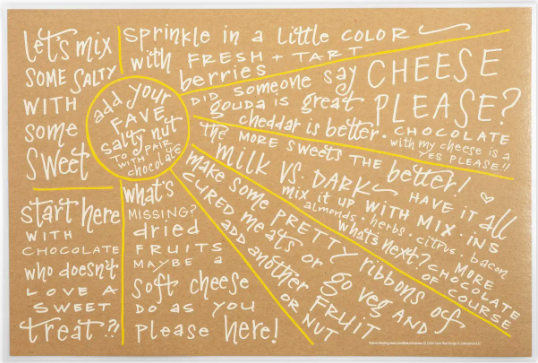 let's mix
SOME SALTY
WITH
some
Sweet
sprinkle in a little COLOR
with FRESH + TART
berries
DID someone say CHEESE
gouda is great PLEASE?
cheddar is better. CHOCOLATE
with my cheese is a
YES PLEASE!!
add your
FAVE
salty nut
TO PAIR
WITH
chocolate
the MORE SWEETS THE better!
MILK VS. DARK HAVE IT all
mix it up WITH MIX-INS
almonds, herbs, citrus, bacon
what's next? MORE
CHOCOLATE
OF COURSE
make some PRETTY ribbons of
CURED meats or go veg AND
ADD another FRUIT
OR NUT
start here
WITH
CHOCOLATE
who doesn't
LOVE A
SWEET
treat?!
what's
MISSING?
dried
FRUITS
MAYBE a
soft cheese
DO AS YOU
please here!